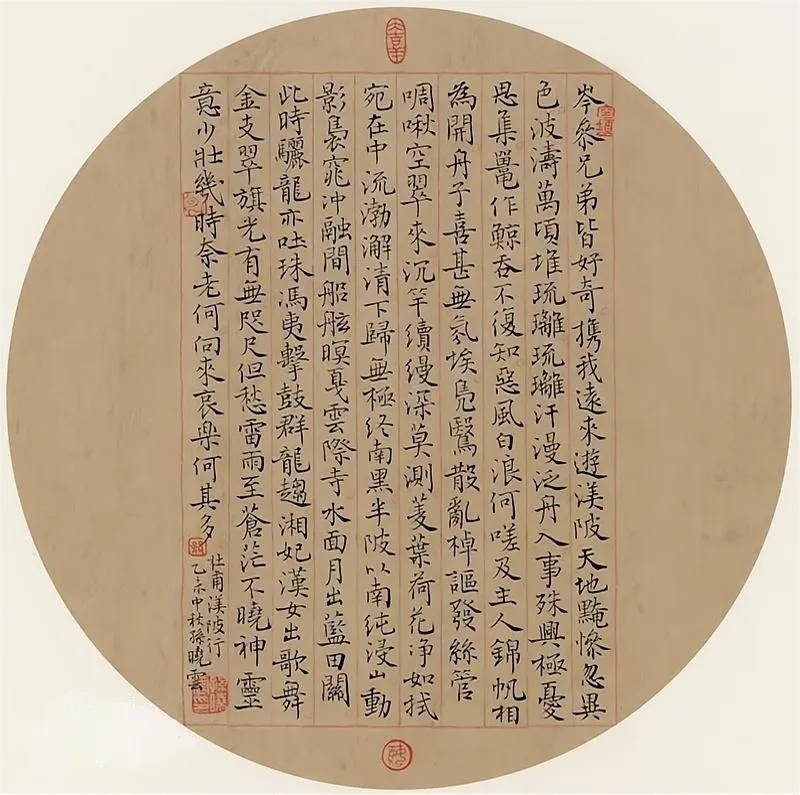 岑參兄弟皆好奇携我遠來遊渼陂天地黤慘忽異
色波濤萬頃堆琉璃琉璃汗漫泛舟入事殊興極憂
思集鼉作鯨吞不復知惡風白浪何嗟及主人錦帆相
為開舟子喜甚無氛埃鳧鷖散亂棹謳發絲管
啁啾空翠來沉竿續縵深莫測菱葉荷花净如拭
宛在中流渤澥清下歸無極終南黑半陂以南純浸山動
影裊窕冲融間船舷暝戛雲際寺水面月出藍田關
此時驪龍亦吐珠馮夷擊鼓群龍趨湘妃漢女出歌舞
金支翠旗光有無咫尺但愁雷雨至蒼茫不曉神靈
意少壯幾時奈老何向來哀樂何其多
杜甫渼陂行
乙未中秋孫曉雲